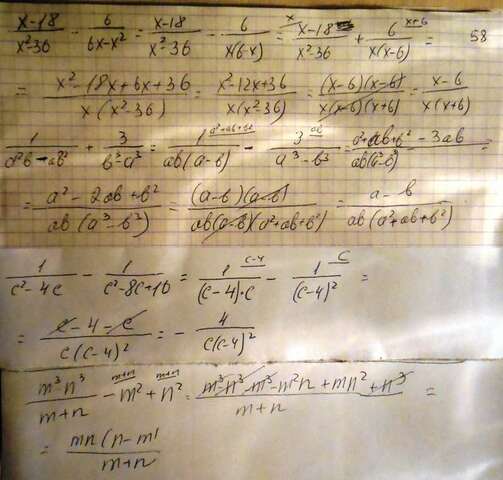 x-18/x²-36 - 6/6x-x² = x-18/x²-36 - 6/x(6-x) = x x-18/x²-36 + 6 x+6/x(x-6) = 58
= x²-18x+6x+36/x(x²-36) = x²-12x+36/x(x²-36) = (x-6)(x-6)/x(x-6)(x+6) = x-6/x(x+6)
1/a²b-ab² + 3/b³-a³ = 1 a²+ab+b²/ab(a-b) - 3 ab/a³-b³ = a²+ab+b²-3ab/ab(a³-b³) =
= a²-2ab+b²/ab(a³-b³) = (a-b)(a-b)/ab(a-b)(a²+ab+b²) = a-b/ab(a²+ab+b²)
1/c²-4c - 1/c²-8c+16 = 1 c-4/(c-4)·c - 1 c/(c-4)² =
= c-4-c/c(c-4)² = - 4/c(c-4)²
m³n³/m+n - m² m+n + n² m+n = m³-n³-m³-m²n+mn²+n³/m+n =
= mn(n-m)/m+n